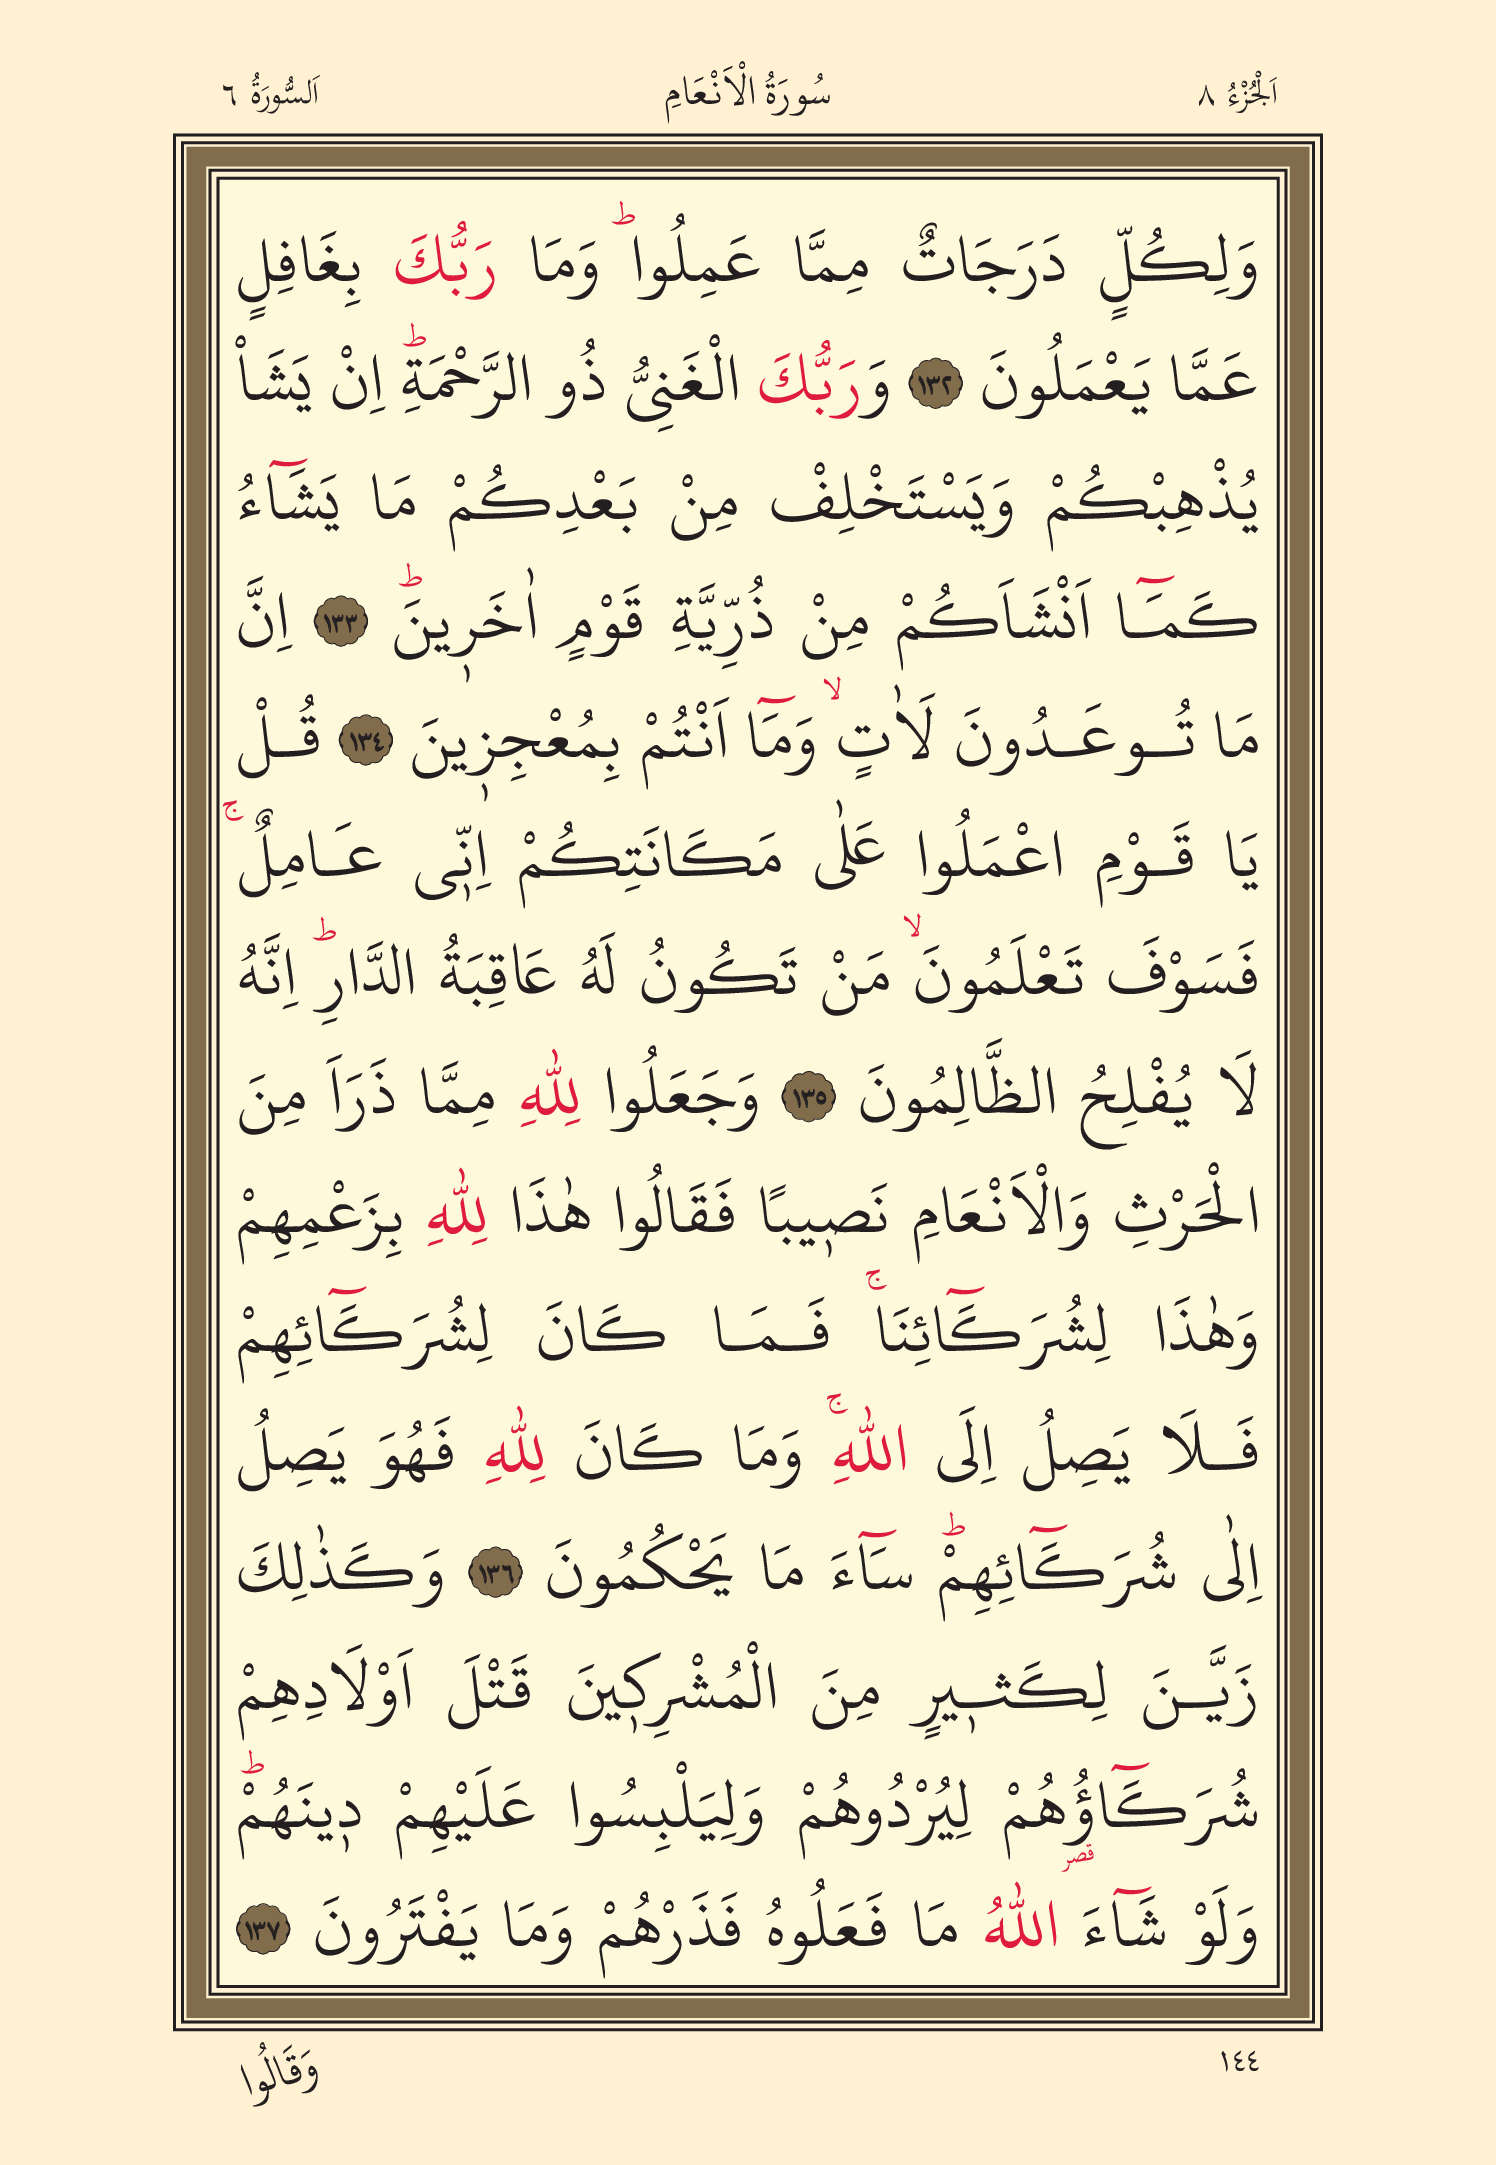 اَلْجُزْءُ ٨
سُورَةُ الْاَنْعَامِ
اَلسُّورَةُ ٦
وَلِكُلٍّ دَرَجَاتٌ مِمَّا عَمِلُواۜ وَمَا رَبُّكَ بِغَافِلٍ
عَمَّا يَعْمَلُونَ ﴿١٣٢﴾ وَرَبُّكَ الْغَنِىُّ ذُو الرَّحْمَةِۜ اِنْ يَشَأْ
يُذْهِبْكُمْ وَيَسْتَخْلِفْ مِنْ بَعْدِكُمْ مَا يَشَٓاءُ
كَمَٓا اَنْشَاَكُمْ مِنْ ذُرِّيَّةِ قَوْمٍ اٰخَر۪ينَۜ ﴿١٣٣﴾ اِنَّ
مَا تُوعَدُونَ لَاٰتٍۙ وَمَٓا اَنْتُمْ بِمُعْجِز۪ينَ ﴿١٣٤﴾ قُلْ
يَا قَوْمِ اعْمَلُوا عَلٰى مَكَانَتِكُمْ اِنّ۪ى عَامِلٌۚ
فَسَوْفَ تَعْلَمُونَۙ مَنْ تَكُونُ لَهُ عَاقِبَةُ الدَّارِۜ اِنَّهُ
لَا يُفْلِحُ الظَّالِمُونَ ﴿١٣٥﴾ وَجَعَلُوا لِلّٰهِ مِمَّا ذَرَاَ مِنَ
الْحَرْثِ وَالْاَنْعَامِ نَص۪يبًا فَقَالُوا هٰذَا لِلّٰهِ بِزَعْمِهِمْ
وَهٰذَا لِشُرَكَٓائِنَاۚ فَمَا كَانَ لِشُرَكَٓائِهِمْ
فَلَا يَصِلُ اِلَى اللّٰهِۚ وَمَا كَانَ لِلّٰهِ فَهُوَ يَصِلُ
اِلٰى شُرَكَٓائِهِمْۜ سَٓاءَ مَا يَحْكُمُونَ ﴿١٣٦﴾ وَكَذٰلِكَ
زَيَّنَ لِكَث۪يرٍ مِنَ الْمُشْرِك۪ينَ قَتْلَ اَوْلَادِهِمْ
شُرَكَٓاؤُ۬هُمْ لِيُرْدُوهُمْ وَلِيَلْبِسُوا عَلَيْهِمْ د۪ينَهُمْۜ
قصر
وَلَوْ شَٓاءَ اللّٰهُ مَا فَعَلُوهُ فَذَرْهُمْ وَمَا يَفْتَرُونَ ﴿١٣٧﴾
١٤٤
وَقَالُوا